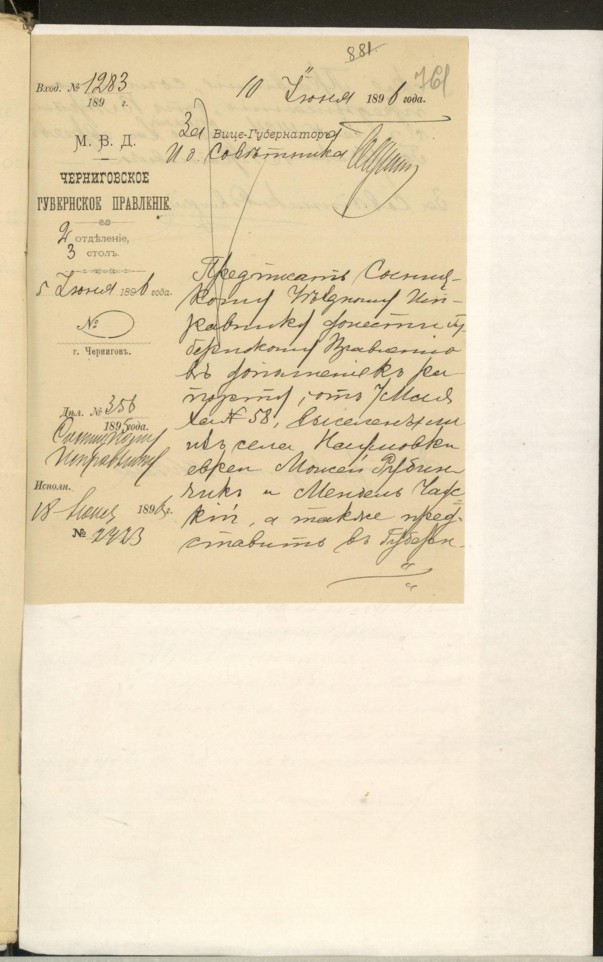 881
761
Вход. № 1283
189 г.
10 Іюня 1896 года.
М. В. Д.
За Вице-Губернатора
И д. Совѣтника
ЧЕРНИГОВСКОЕ
ГУБЕРНСКОЕ ПРАВЛЕНІЕ.
2 отдѣленіе,
3 столъ.
5 Іюня 1896 года.
№
г. Черниговъ.
Дѣл. № 356
1895 года.
Сосницкому
Исправнику
Исполн.
18 Іюня 1896 г.
№ 2423
Предписать Сосниц-
кому Уѣздному Ис-
правнику донести Гу-
бернскому Правленію
въ дополненіе къ ра
порту, отъ 7 Мая
за № 58, выселены ли
изъ села Наумовки
евреи Мовсей Рубин
чикъ и Мендель Чар-
кій, а также пред-
ставить въ Губерн-